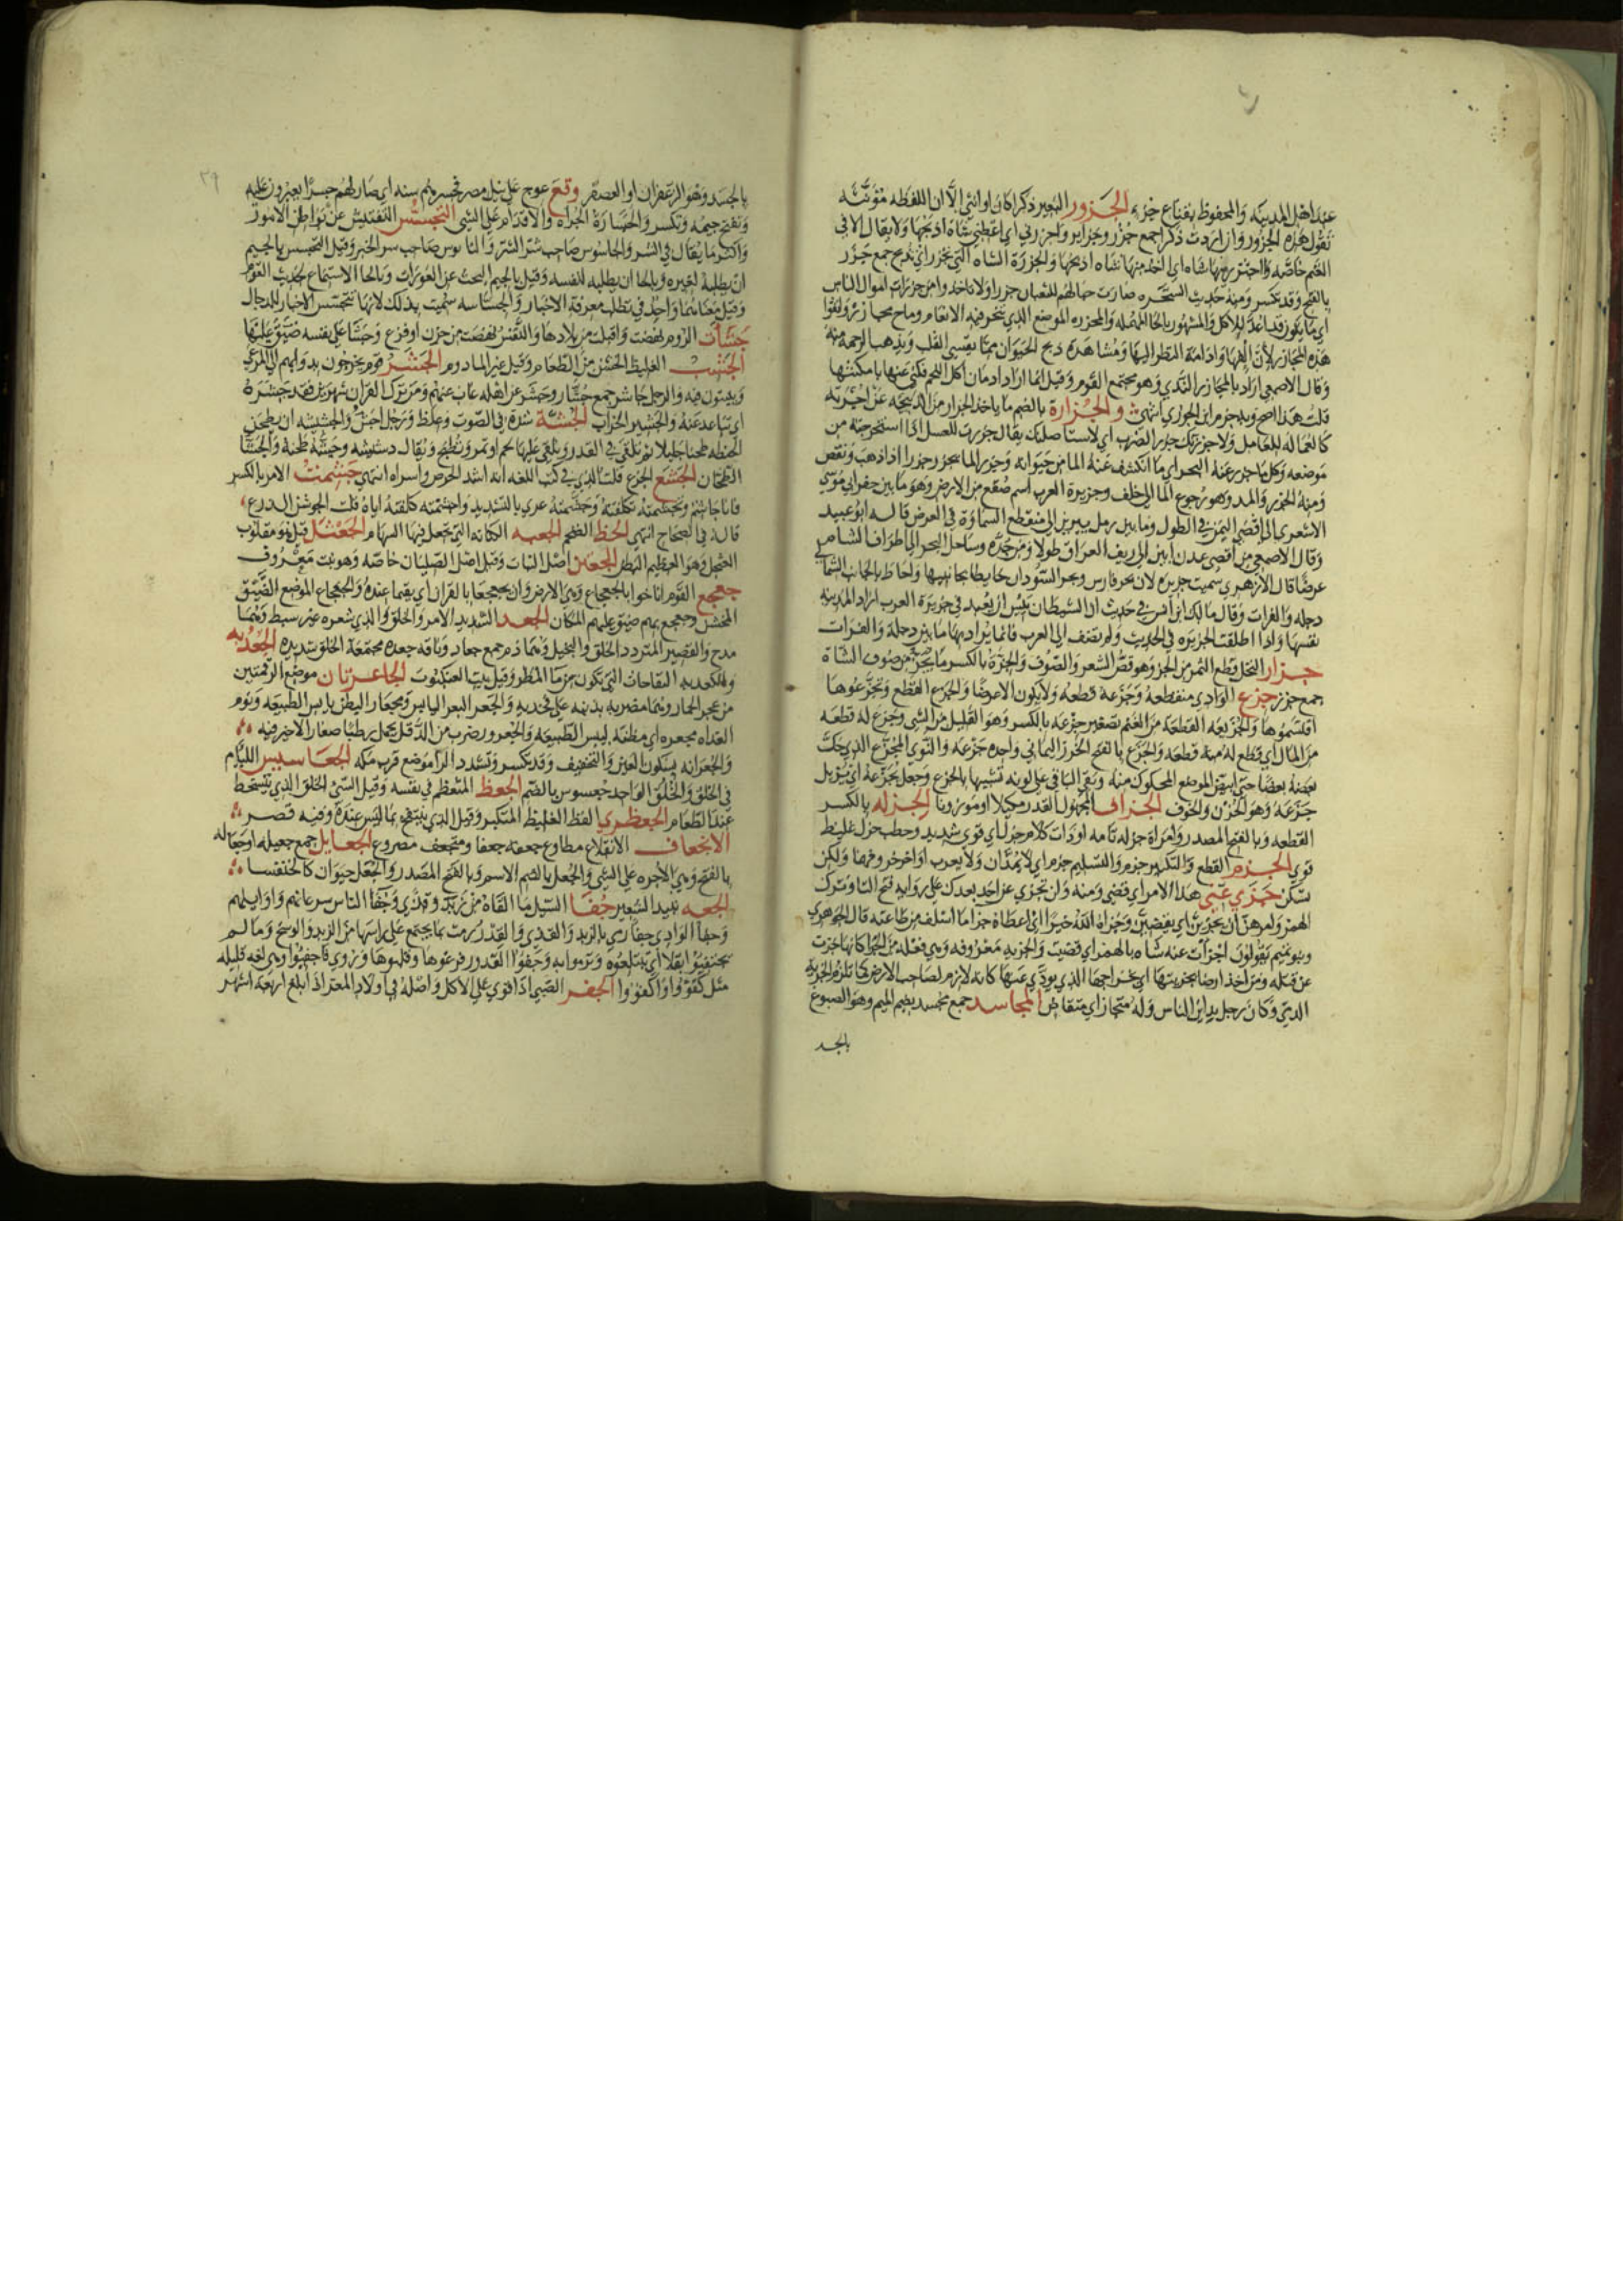 عند اهل المدينه والمحفوظ بقناع جزء الجزور البعير ذكرا كان او انثي الا ان اللفظه مؤنثه
تقول هذه الجزور وان اردت ذكرا جمع جزر وجزاير واجزرني اي اعطني شاة اذبحها ولا يقال الا في
الغنم خاصه
بالفتح وقد تكسر ومنه حديث السحره صارت حبالهم للثعبان جزرا ولا تاخذوا من جزرات اموال الناس
اي ما يكون قد اعد للاكل والمشهور بالحا المهمله والمجزره الموضع الذي تنحر فيه الانعام
هذه المجازر لان الفها وادامة النظر اليها ومشاهدة ذبح الحيوان مما يقسي القلب ويذهب الرحمة منه
وقال الاصمعي اراد بالمجازر الندي وهو مجتمع القوم وقيل انما اراد ادمان اكل اللحم فكني عنها بامكنتها
قلت هذا اصح وبه جزم ابن الجوزي انتهي والجزارة بالضم ما ياخذ الجزار من الذبيحه عن اجرته
كالعماله للعامل ولاجزرنك جزر الضرب اي لاستاصلنك يقال جزرت للعسل اذا استخرجته من
موضعه وكل ما جزر عنه البحر اي ما انكشف عنه الما من حيوانه وجزر الما يجزر جزرا اذا ذهب ونقص
ومنه الجزر والمد وهو رجوع الما الي خلف وجزيرة العرب اسم صقع من الارض وهو ما بين حفر ابي موسي
الاشعري الي اقصي اليمن في الطول وما بين رمل يبرين الي منقطع السماوة في العرض قاله ابو عبيد
وقال الاصمعي من اقصي عدن ابين الي ريف العراق طولا ومن جده وساحل البحر الي اطراف الشام
عرضا قال الازهري سميت جزيره لان بحر فارس وبحر السودان احاطا بجانبيها واحاط بالجانب الشمالي
دجله والفرات وقال مالك ابن انس في حديث ان الشيطان يئس ان يعبد في جزيرة العرب اراد المدينه
نفسها واذا اطلقت الجزيره في الحديث ولم تضف الي العرب فانما يراد بها ما بين دجلة والفرات
جزار النخل قطع الثمر من الجز وهو قص الشعر والصوف والجزة بالكسر ما يجز من صوف الشاة
جمع جزز جزع الوادي منقطعه وجزعه قطعه ولا يكون الا عرضا والجزع القطع وتجزعوها
اقتسموها والجزيعه القطعه من الغنم تصغير جزعه بالكسر وهو القليل من الشي وجزع له قطعه
من المال اي قطع له منه قطعه والجزع بالفتح الخرز اليماني واحده جزعه والنوي المجزع الذي حك
بعضه بعضا حتي ابيض الموضع المحكوك منه وبقي الباقي علي لونه تشبيها بالجزع وجعل يجزعه اي يزيل
جزعه وهو الحزن والخوف الجزاف المجهول القدر مكيلا او موزونا الجزله بالكسر
القطعه وبالفتح المصدر وامراة جزله تامه او ذات كلام جزل اي قوي شديد وحطب جزل غليظ
قوي الجزم القطع والتكبير جزم والتسليم جزم اي لا يمدان ولا يعرب اواخر حروفهما ولكن
يسكن جزي عني هذا الامر اي قضي ومنه ولن تجزي عن احد بعدك علي روايه فتح التا وترك
الهمز وامرهن ان يجزين اي يقضين وجزاه الله خيرا اي اعطاه جزا ما اسلف من طاعته قال الجوهري
وبنو تميم يقولون اجزات عنه شاه بالهمز اي قضيت والجزيه معروفه وهي فعله من الجزا كانها جزت
عن قتله ومن اخذ ارضا بجزيتها اي بخراجها الذي يودي عنها كانه لازم لصاحب الارض كما تلزم الجزية
الذمي وكان رجل يداين الناس وله متجاز اي متقاض المجاسد جمع مجسد بضم الميم وهو المصبوغ
بالجسد
٣٩
بالجسد وهو الزعفران او العصفر وقع عوج علي نيل مصر فجسرهم سنه اي صار لهم جسرا يعبرون عليه
وتفتح جيمه وتكسر والجسارة الجراه والاقدام علي الشي التجسس التفتيش عن بواطن الامور
واكثر ما يقال في الشر والجاسوس صاحب شر الشر والناموس صاحب سر الخير وقيل التجسس بالجيم
ان يطلبه لغيره وبالحا ان يطلبه لنفسه وقيل بالجيم البحث عن العورات وبالحا الاستماع لحديث القوم
وقيل معناهما واحد في تطلب معرفة الاخبار والجساسه سميت بذلك لانها تتجسس الاخبار للدجال
جشات الروم نهضت واقبلت من بلادها والنفس نهضت من حزن او فزع وجشا علي نفسه ضيق عليها
الجشب الغليظ الخشن من الطعام وقيل غير المادوم الجشر قوم يخرجون بدوابهم الي المرعي
ويبيتون فيه والرجل جاشر جمع جشار وجشر عن اهله غاب عنهم ومن ترك القران شهرين فقد جشره
اي تباعد عنه والجشير الجراب الجشة شدة في الصوت وغلظ ورجل اجش والجشيشه ان يطحن
الحنطه طحنا جليلا ثم تلقي في القدر ويلقي عليها لحم او تمر وتطبخ ويقال دشيشه وجشه طحنه والجشا
الطحان الجشع الجزع قلت الذي في كتب اللغه انه اشد الحرص واسواه انتهي جشمت الامر بالكسر
وتجشمته تكلفته وجشمته غيري بالتشديد واجشمته كلفته اياه قلت الجوشن الدرع
قاله في الصحاح انتهي الجظ الضخم الجعبه الكنانه التي تجعل فيها السهام الجعثل قيل هو مقلوب
العثجل وهو العظيم البطن الجعثن اصل النبات وقيل اصل الصليان خاصه وهو نبت معروف
جعجع القوم اناخوا بالجعجاع وهي الارض وان يجعجعا بالقران اي يقيما عنده والجعجاع الموضع الضيق
الخشن وجعجع بهم ضيق عليهم المكان الجعد الشديد الامر والخلق والذي شعره غير سبط وهما
مدح والقصير المتردد الخلق والبخيل وهما ذم جمع جعاد وناقه جعده مجتمعة الخلق شديده الجعدبه
والكعدبه النفاخات التي تكون من ما المطر وقيل بيت العنكبوت الجاعرتان موضع الرقمتين
من عجز الحمار وهما مضربه بذنبه علي فخذيه والجعر البعر اليابس ومجعار البطن يابس الطبيعه ونوم
الغداه مجعره اي مظنه ليبس الطبيعه والجعرور ضرب من الدقل يحمل رطبا صغارا لا خير فيه
والجعرانه بسكون العين والتخفيف وقد تكسر وتشدد الرا موضع قرب مكه الجعاسيس اللئام
في الخلق والخلق الواحد جعسوس بالضم الجعظ المتعظم في نفسه وقيل السيئ الخلق الذي يتسخط
عند الطعام الجعظري الفظ الغليظ المتكبر وقيل الذي ينتفخ بما ليس عنده وفيه قصر
الانجعاف الانقلاع مطاوع جعفه جعفا ومنجعف مصروع الجعايل جمع جعيله او جعاله
بالفتح وهي الاجره علي الشي والجعل بالضم الاسم وبالفتح المصدر والجعل حيوان كالخنفساء
الجعه نبيذ الشعير جفا السيل ما القاه من زبد وقذي وجفا الناس سرعانهم واوايلهم
وجفا الوادي جفا رمي بالزبد والقذي والقدر رمت بما يجتمع علي راسها من الزبد والوسخ وما لم
تجتفيوا بقلا اي تقتلعوه وترموا به وجفوا القدور فرغوها وقلبوها وروي فاجفيوا وهي لغه قليله
مثل كفووا واكفووا الجفر الصبي اذا قوي علي الاكل واصله في اولاد المعز اذا بلغ اربعة اشهر